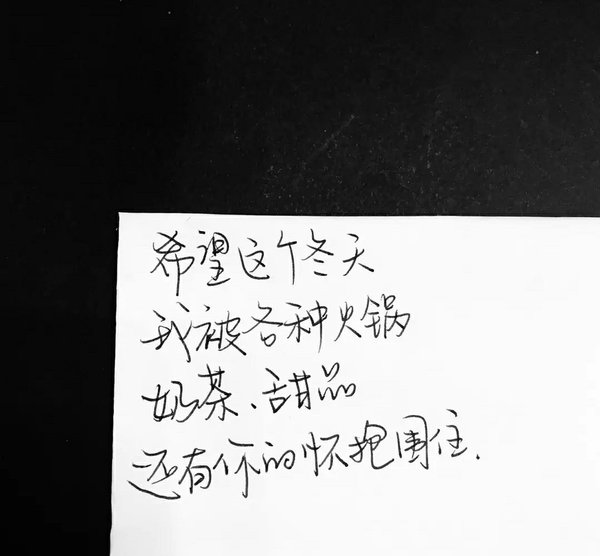 希望这个冬天
我被各种火锅
奶茶、甜品
还有你的怀抱围住.